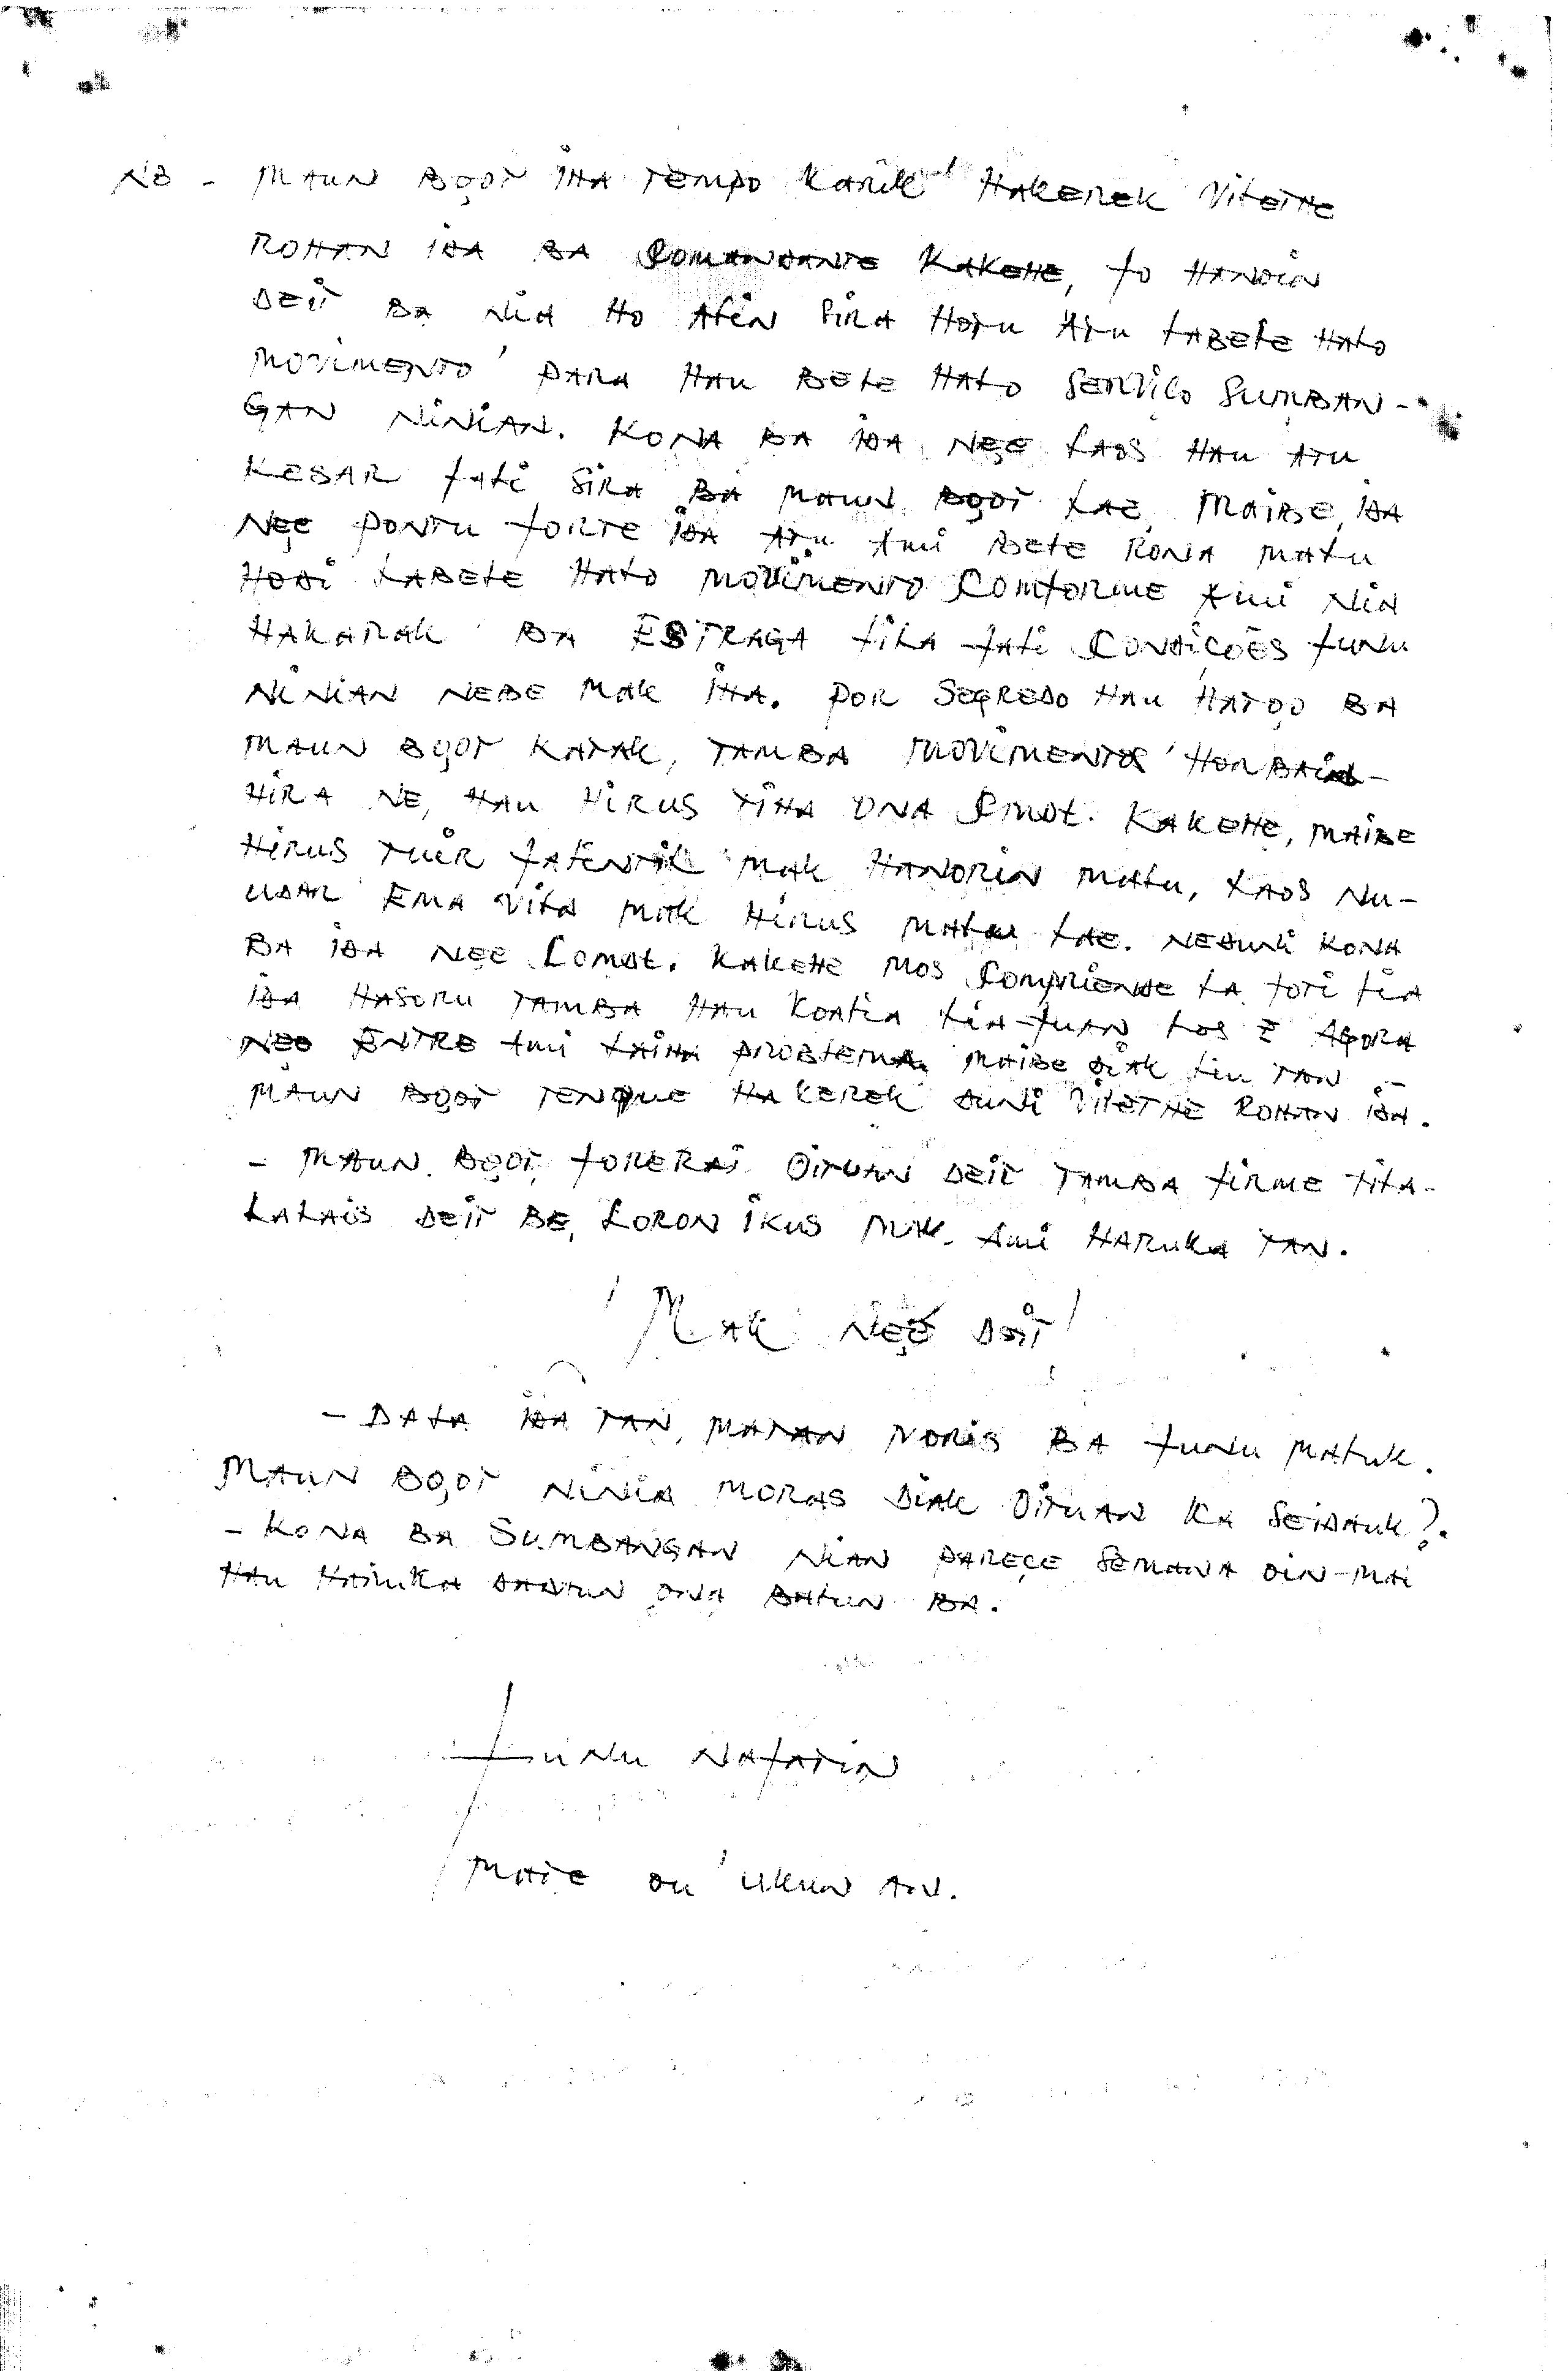 NB - MAUN BOOT IHA TEMPO KARIK HAKEREK VILETHE
ROHAN IDA BA COMANDANTE KAKEHE, FO HANOIN
DEIT BA NIA HO ALIN SIRA HOTU ATU LABELE HALO
MOVIMENTO PARA HAU BELE HALO SERVIÇO SUMBAN-
GAN NINIAN. KONA BA IDA NEE LAOS HAU ATU
KESAR FALI SIRA BA MAUN BOOT LAE, MAIBE, IDA
NEE PONTU FORTE IDA ATU AMI BELE RONA MALU
HODI LABELE HALO MOVIMENTO COMFORME AMI NIA
HAKARAK BA ESTRAGA FILA FALI CONDIÇOES FUNU
NINIAN NEBE MAK IHA. POR SEGREDO HAU HATOO BA
MAUN BOOT KATAK, TAMBA MOVIMENTOS HORBAIN-
HIRA NE, HAU HIRUS TIHA ONA CMDT. KAKEHE, MAIBE
HIRUS TUIR FALINTIL MAK HANORIN MALU, LAOS NU-
UDAR EMA VILA MAK HIRUS MALU LAE. NEDUNI KONA
BA IDA NEE COMDT. KAKEHE MOS COMPRIENDE LA FOTI LIA
IDA HASORU TAMBA HAU KOALIA LIA-FUAN LOS E AGORA
NEE ENTRE AMI LAIHA PROBLEMA, MAIBE DIAK LIU TAN -
MAUN BOOT TENQUE HAKEREK DUNI VILETHE ROHAN IDA.
- MAUN BOOT, FORERAI OITUAN DEIT TAMBA FIRME FILA-
LALAIS DEIT BE, LORON IKUS MAK AMI HARUKA TAN.
! MAK NEE DEIT !
- DALA IDA TAN, MANAN NORIS BA FUNU MALUK.
MAUN BOOT NINIA MORAS DIAK OITUAN KA SEIDAUK?.
- KONA BA SUMBANGAN NIAN PARECE SEMANA OIN-MAI
HAU HARUKA DADAUN ONA BALUN BA.
FUNU NAFATIN
MATE OU UKUN AN.